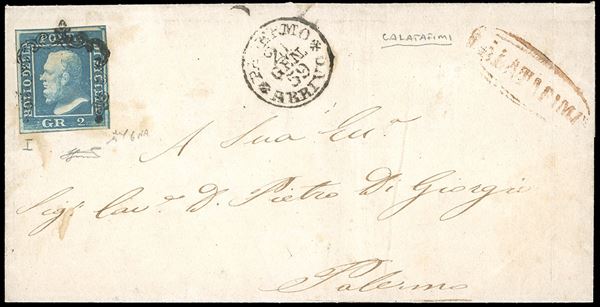 BOLLO DELLA POSTA DI SICILIA
GR. 2.
I
PALERMO
21
GEN
59
* ARRIVO *
CALATAFIMI
CALATAFIMI
A Sua Ecc.a
Sig.r Cav.e D. Pietro Di Giorgi
Palermo